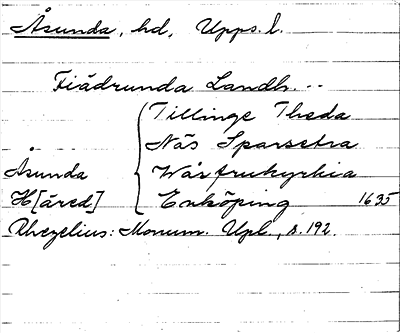 Åsunda, hd, Upps. l.
Fiädrunda Landh. ..
Tillinge Theda
Näs Sparsetra
Åsunda Wårfrukyrkia
H[äred] Enköping 1635
Rhezelius: Monum. Upl., s. 192.